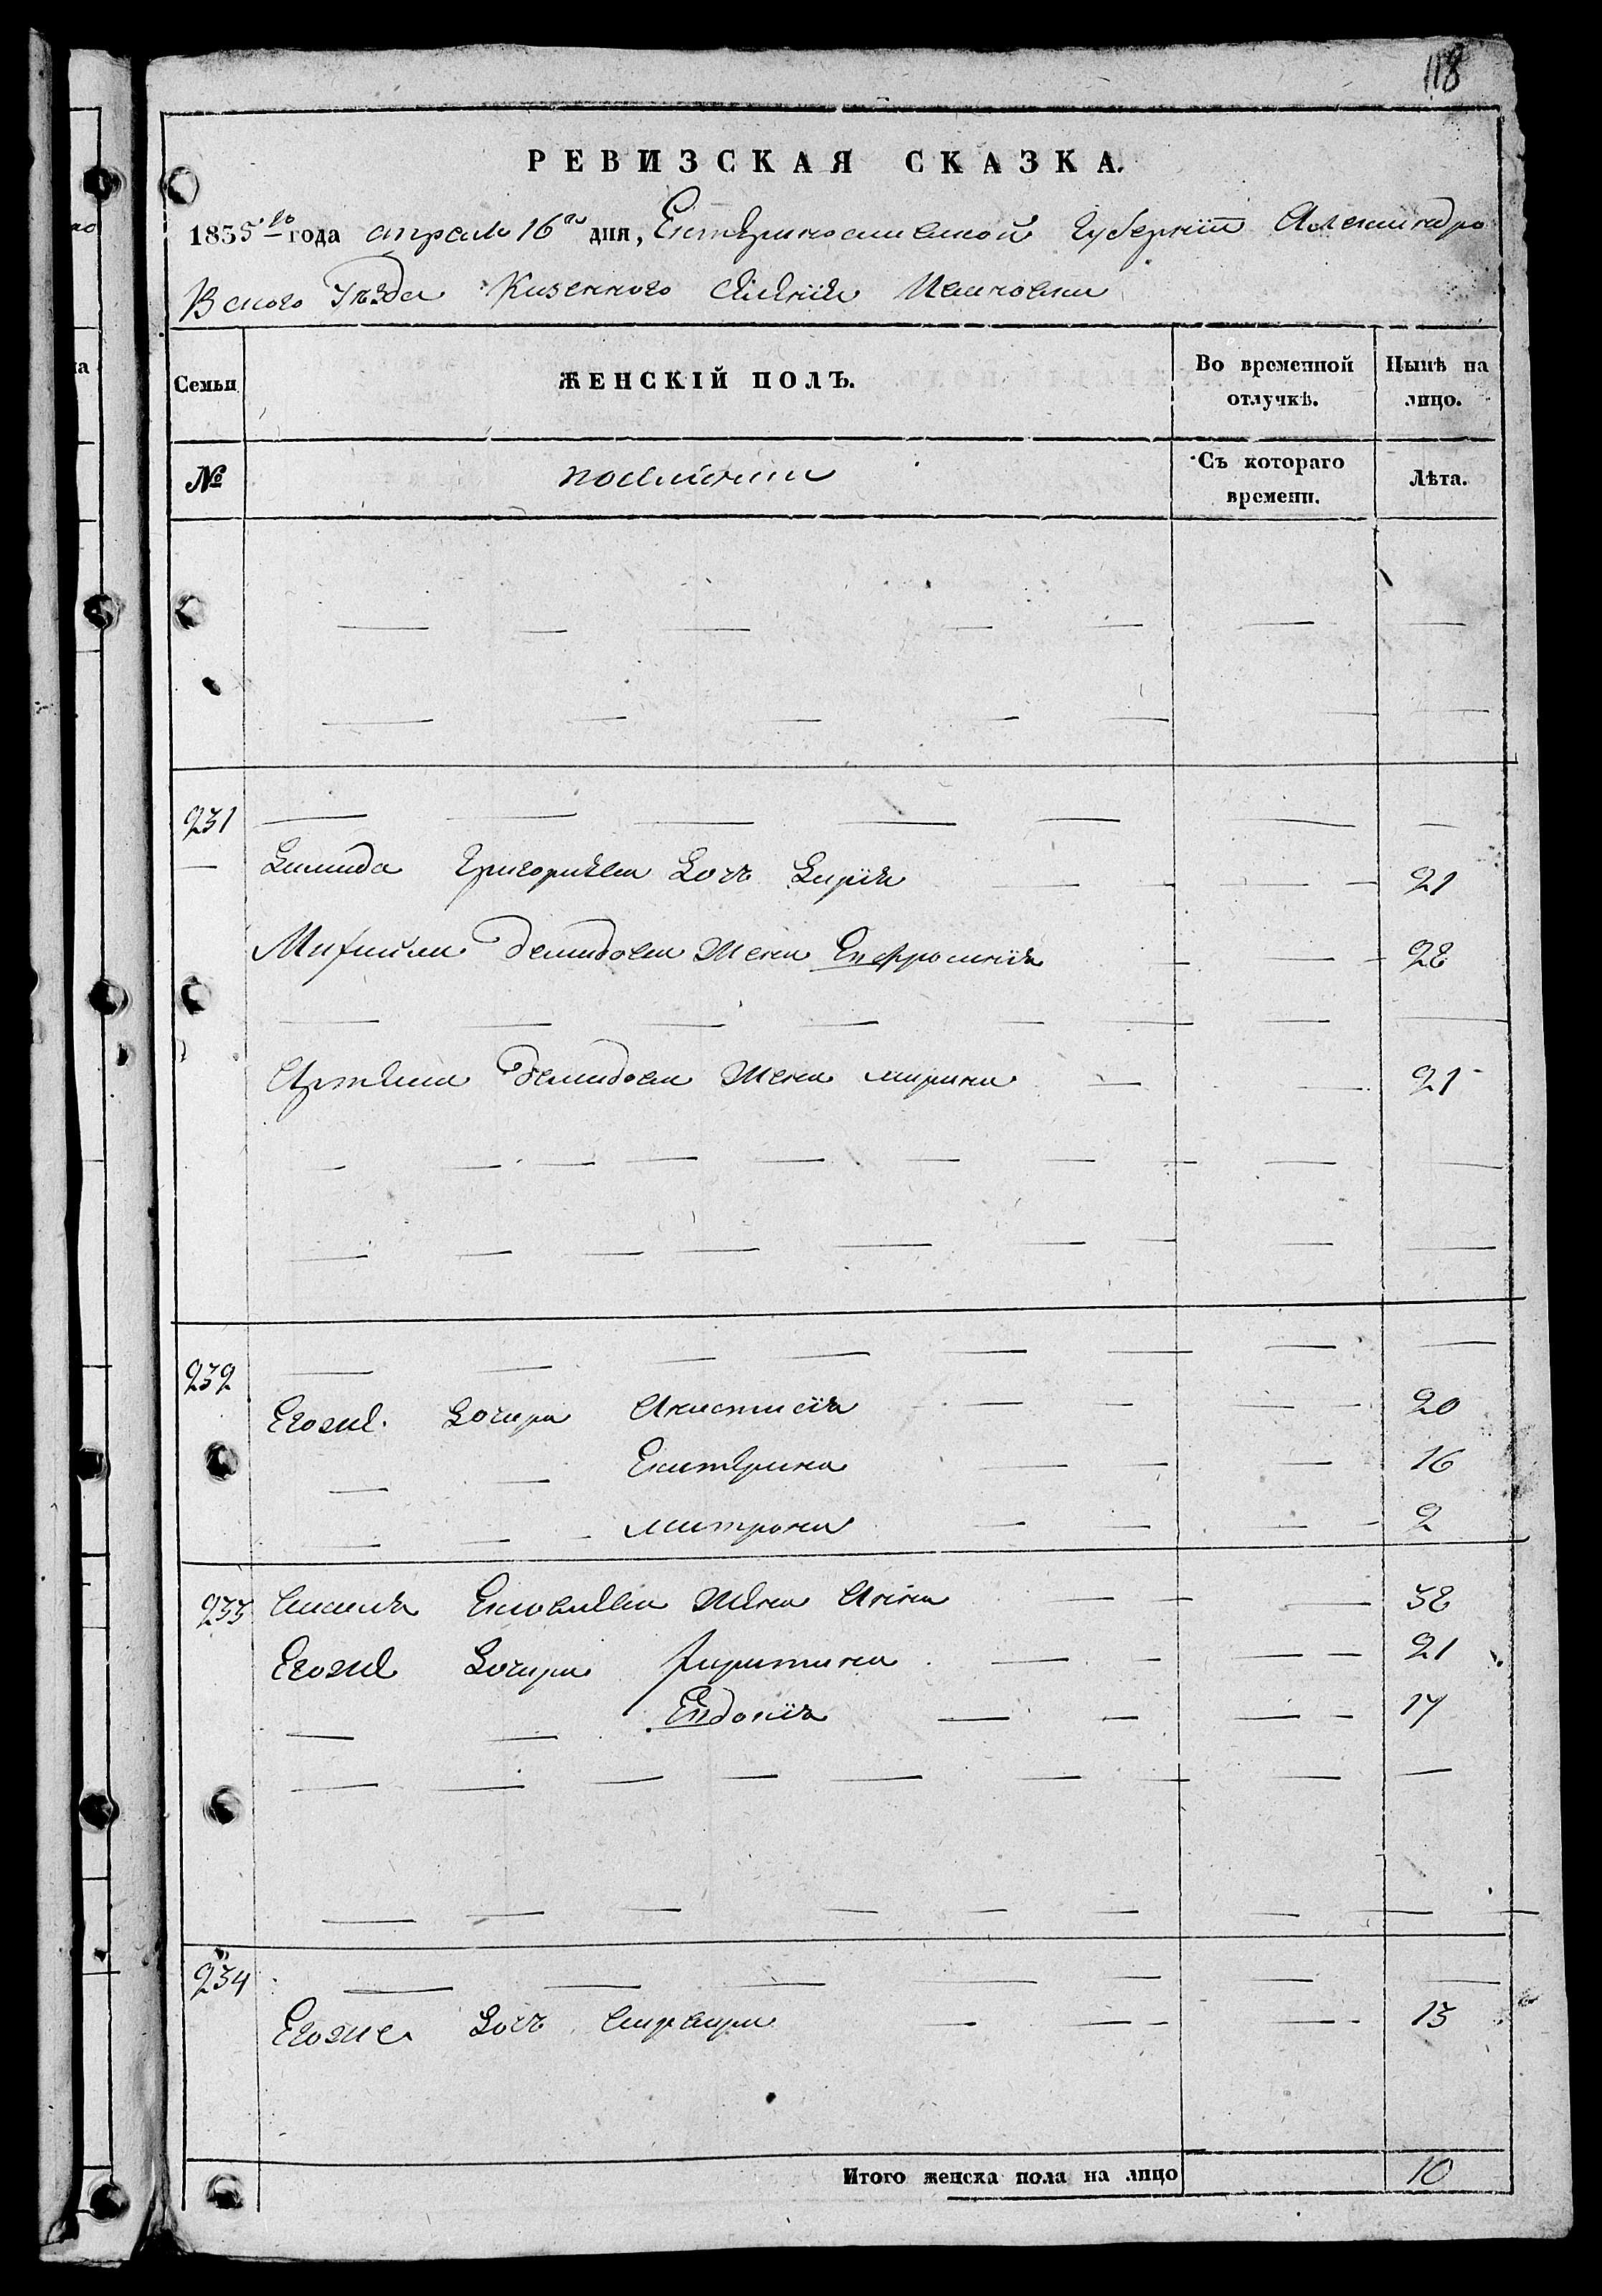 118
РЕВИЗСКАЯ СКАЗКА.
1835го года апреля 16го дня, Екатеринославской Губернии Александро
Вского Уѣзда Казенного Селения Ивановки
Семьи
ЖЕНСКІЙ ПОЛЪ.
Во временной отлучкѣ.
Нынѣ на лицо.
№
поселянки
Съ котораго времени.
Лѣта.
231
Демида Григориева Дочь Дария 21
Михаила Демидова Жена Евфросиния 28
Артема Демидова Жена марина 21
232
Егоже Дочери Анастасия 20
Екатерина 16
матрона 2
233 Жена Анна 38
Егоже Дочери Харитина 21
Евдокия 17
234
Егоже Дочь 13
Итого женска пола на лицо 10